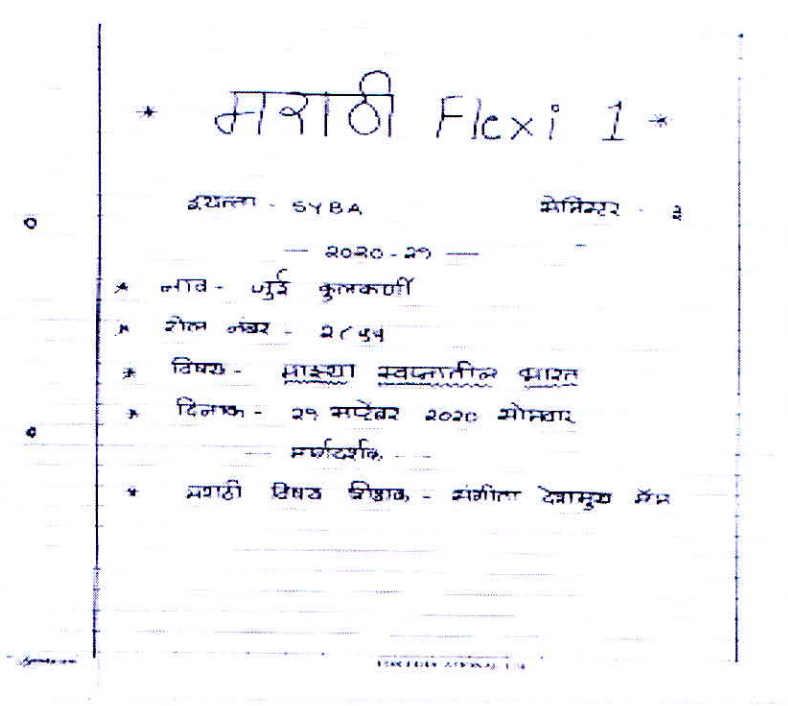 * मराठी Flexi 1 *
इयत्ता - SYBA सेमिस्टर - ३
— २०२० - २१ —
* नाव - जुई कुलकर्णी
* रोल नंबर - २८५५
* विषय - माझ्या स्वप्नातील भारत
* दिनांक - २१ सप्टेंबर २०२० सोमवार
मार्गदर्शक - -
* मराठी विषय शिक्षक - संगीता देशमुख मॅम